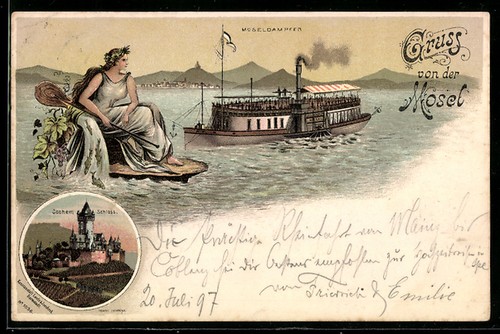 MOSELDAMPFER
Gruss
von der
Mosel
Cochem Schloss.
Die prächtige Rheinfahrt von Mainz bis
Coblenz sei dir bestens empfohlen zur
von Friedrich & Emilie
20. Juli 97